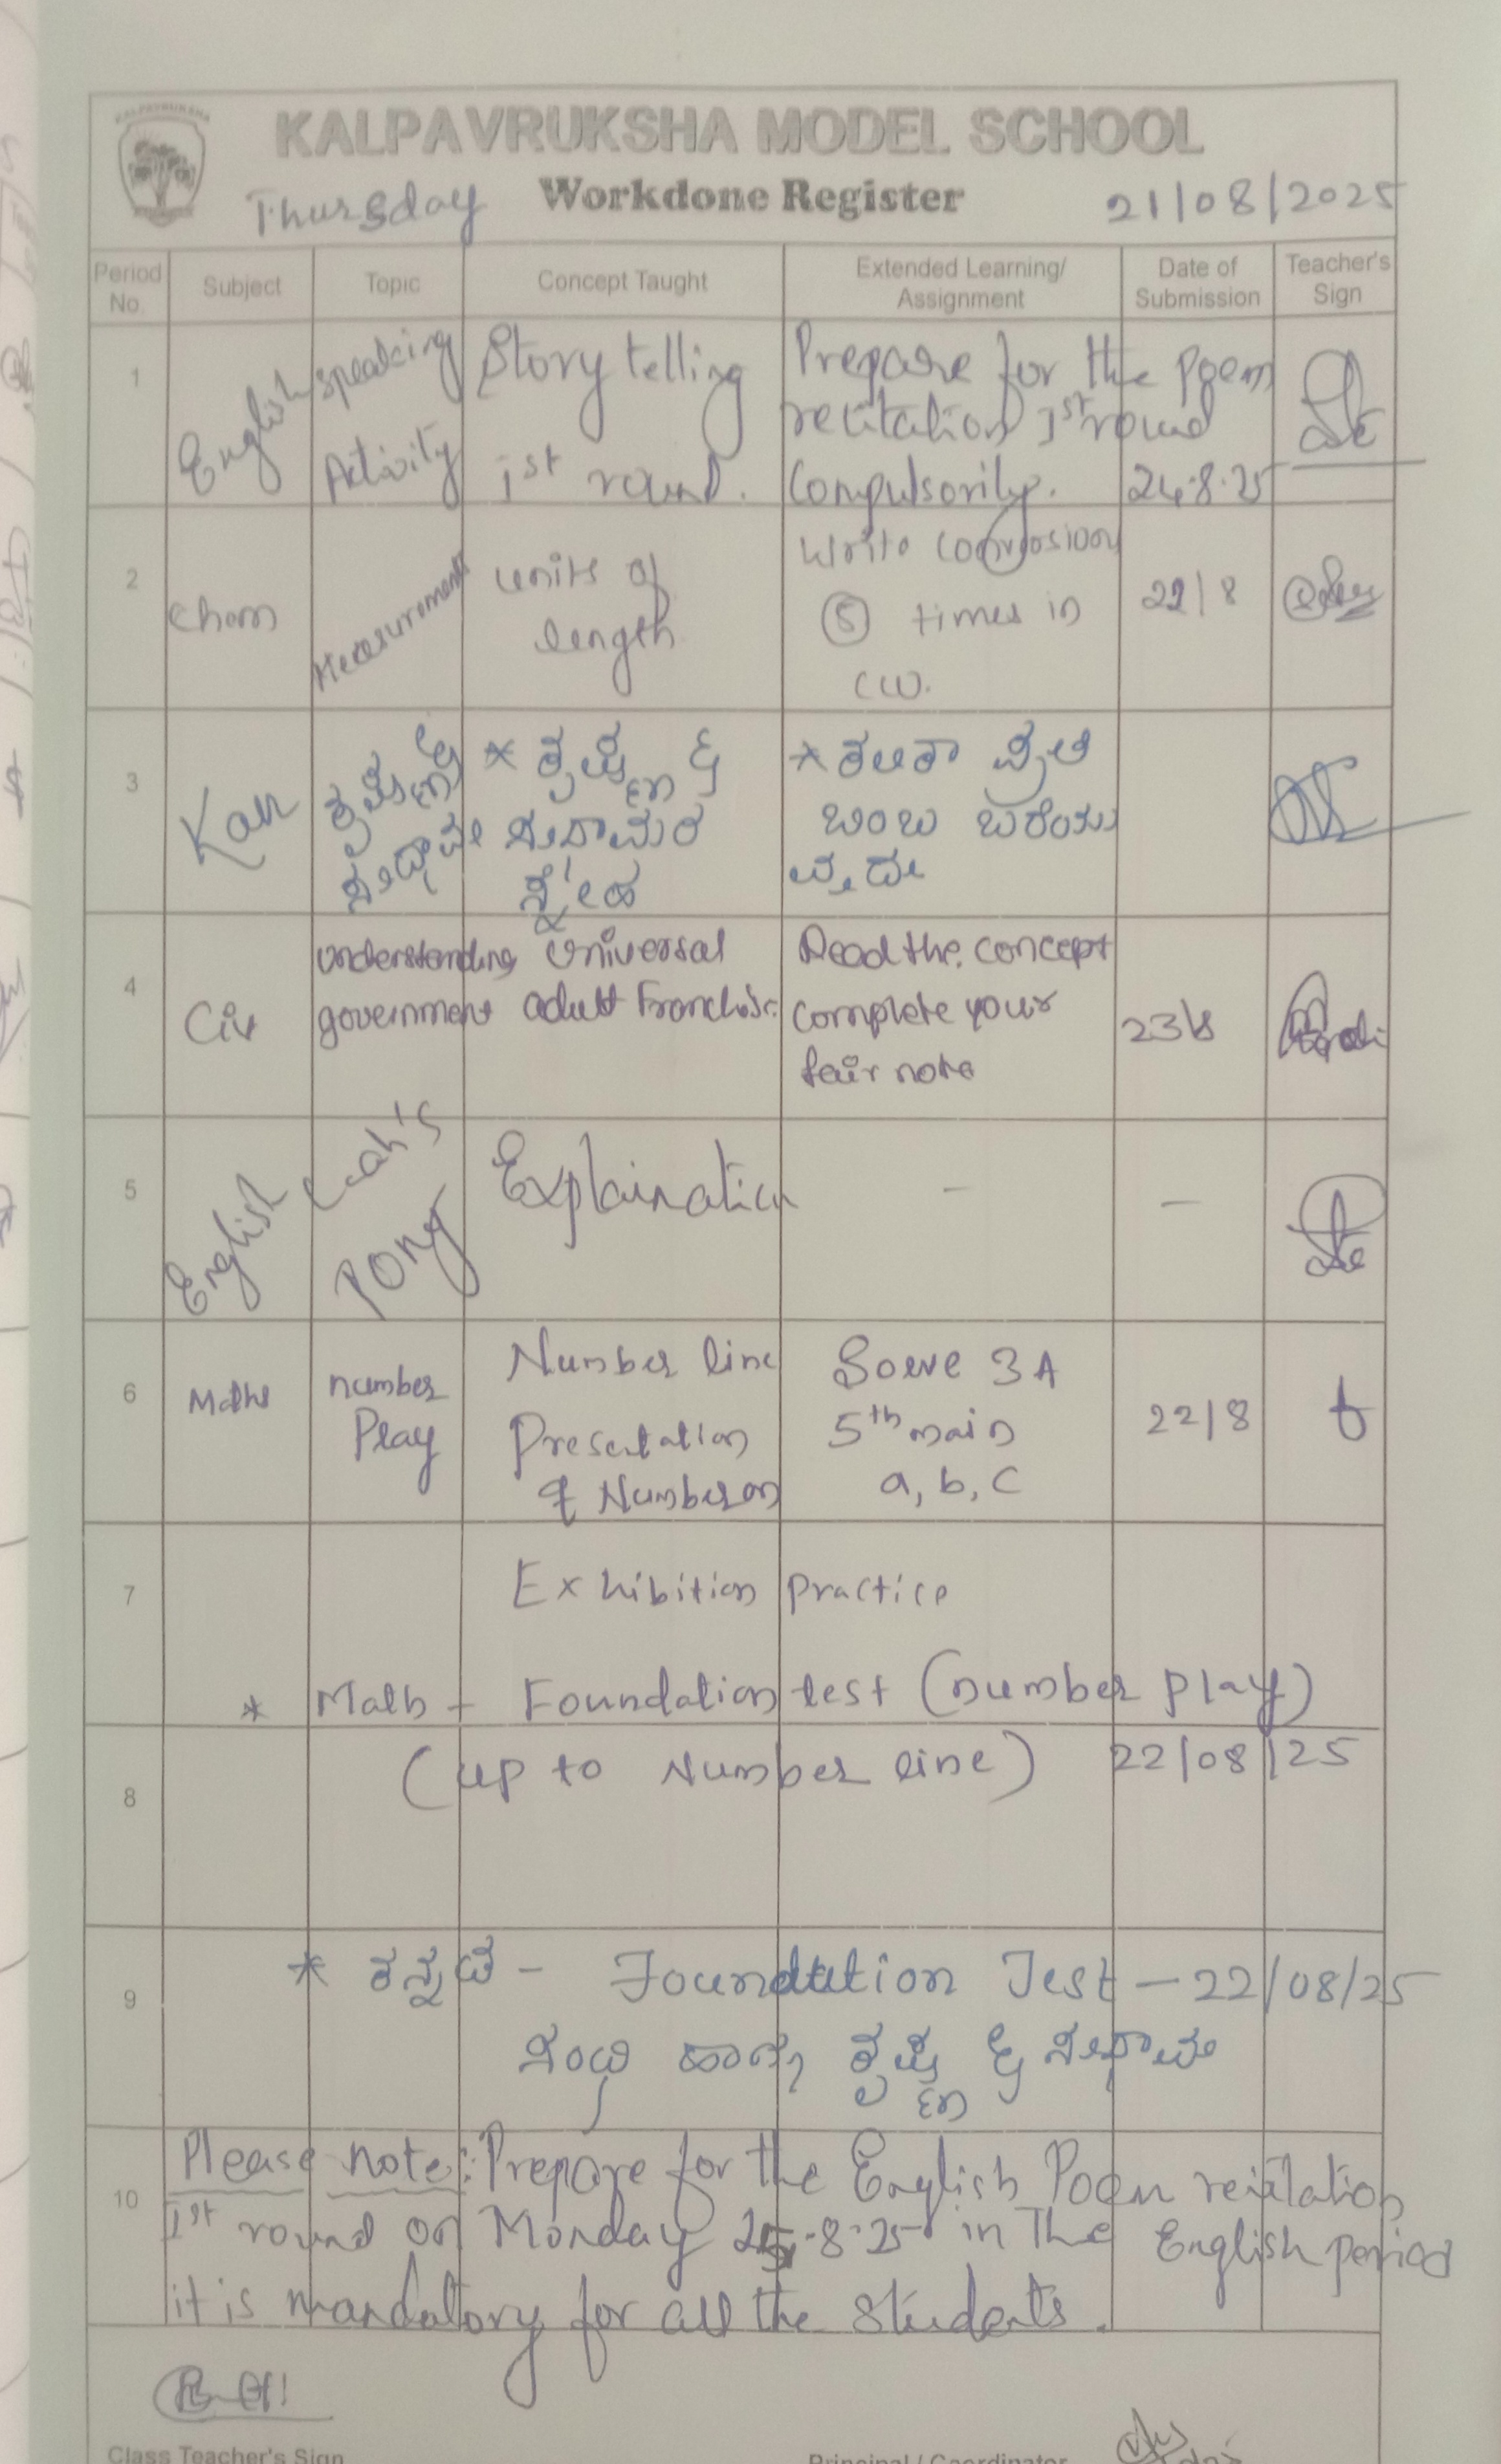 KALPAVRUKSHA
KALPAVRUKSHA MODEL SCHOOL
Thursday Workdone Register 21/08/2025
Period No. Subject Topic Concept Taught Extended Learning/ Assignment Date of Submission Teacher's Sign
1 English speaking Activity Story telling 1st round. Prepare for the poem recitation 1st round Compulsorily. 24.8.25
2 Chem Measurements units of length Write conversion 5 times in CW. 22/8
3 Kan ಕೃಷ್ಣ * ಕೃಷ್ಣ ಸುಧಾಮರ ಸ್ನೇಹ * ಕಲಿಕಾ
4 Civ understanding government Universal adult Franchise Read the concept complete your fair note 23/8
5 English Leah's Pony Explaination - -
6 Maths number Play Number line Presentation of Number on Solve 3A 5th main a, b, c 22/8
7 Exhibition practice
* Math - Foundation test (number play)
8 (up to Number line) 22/08/25
9 * ಕನ್ನಡ - Foundation Test - 22/08/25
ಸಂಧಿ ಹಾಗೂ ಕೃಷ್ಣ
10 Please note: Prepare for the English Poem recitation
1st round on Monday 25.8.25 in The English period
it is mandatory for all the students.
Class Teacher's Sign Principal / Coordinator